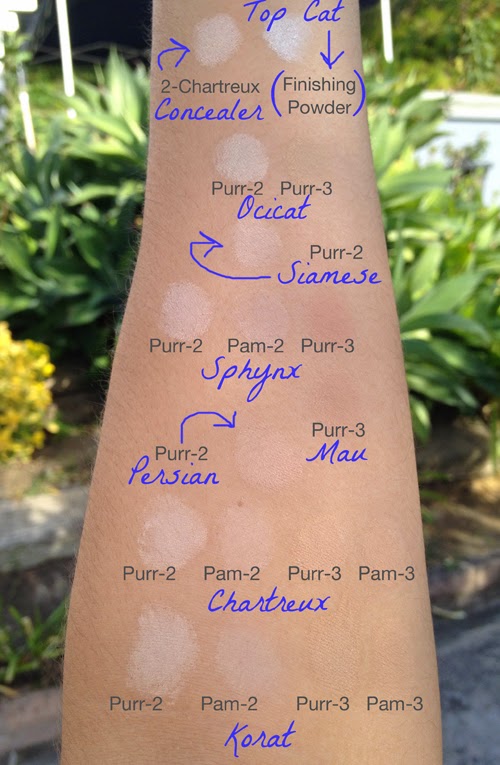 Top Cat
2-Chartreux
Concealer
(Finishing
Powder)
Purr-2 Purr-3
Ocicat
Purr-2
Siamese
Purr-2 Pam-2 Purr-3
Sphynx
Purr-3
Mau
Purr-2
Persian
Purr-2 Pam-2 Purr-3 Pam-3
Chartreux
Purr-2 Pam-2 Purr-3 Pam-3
Korat